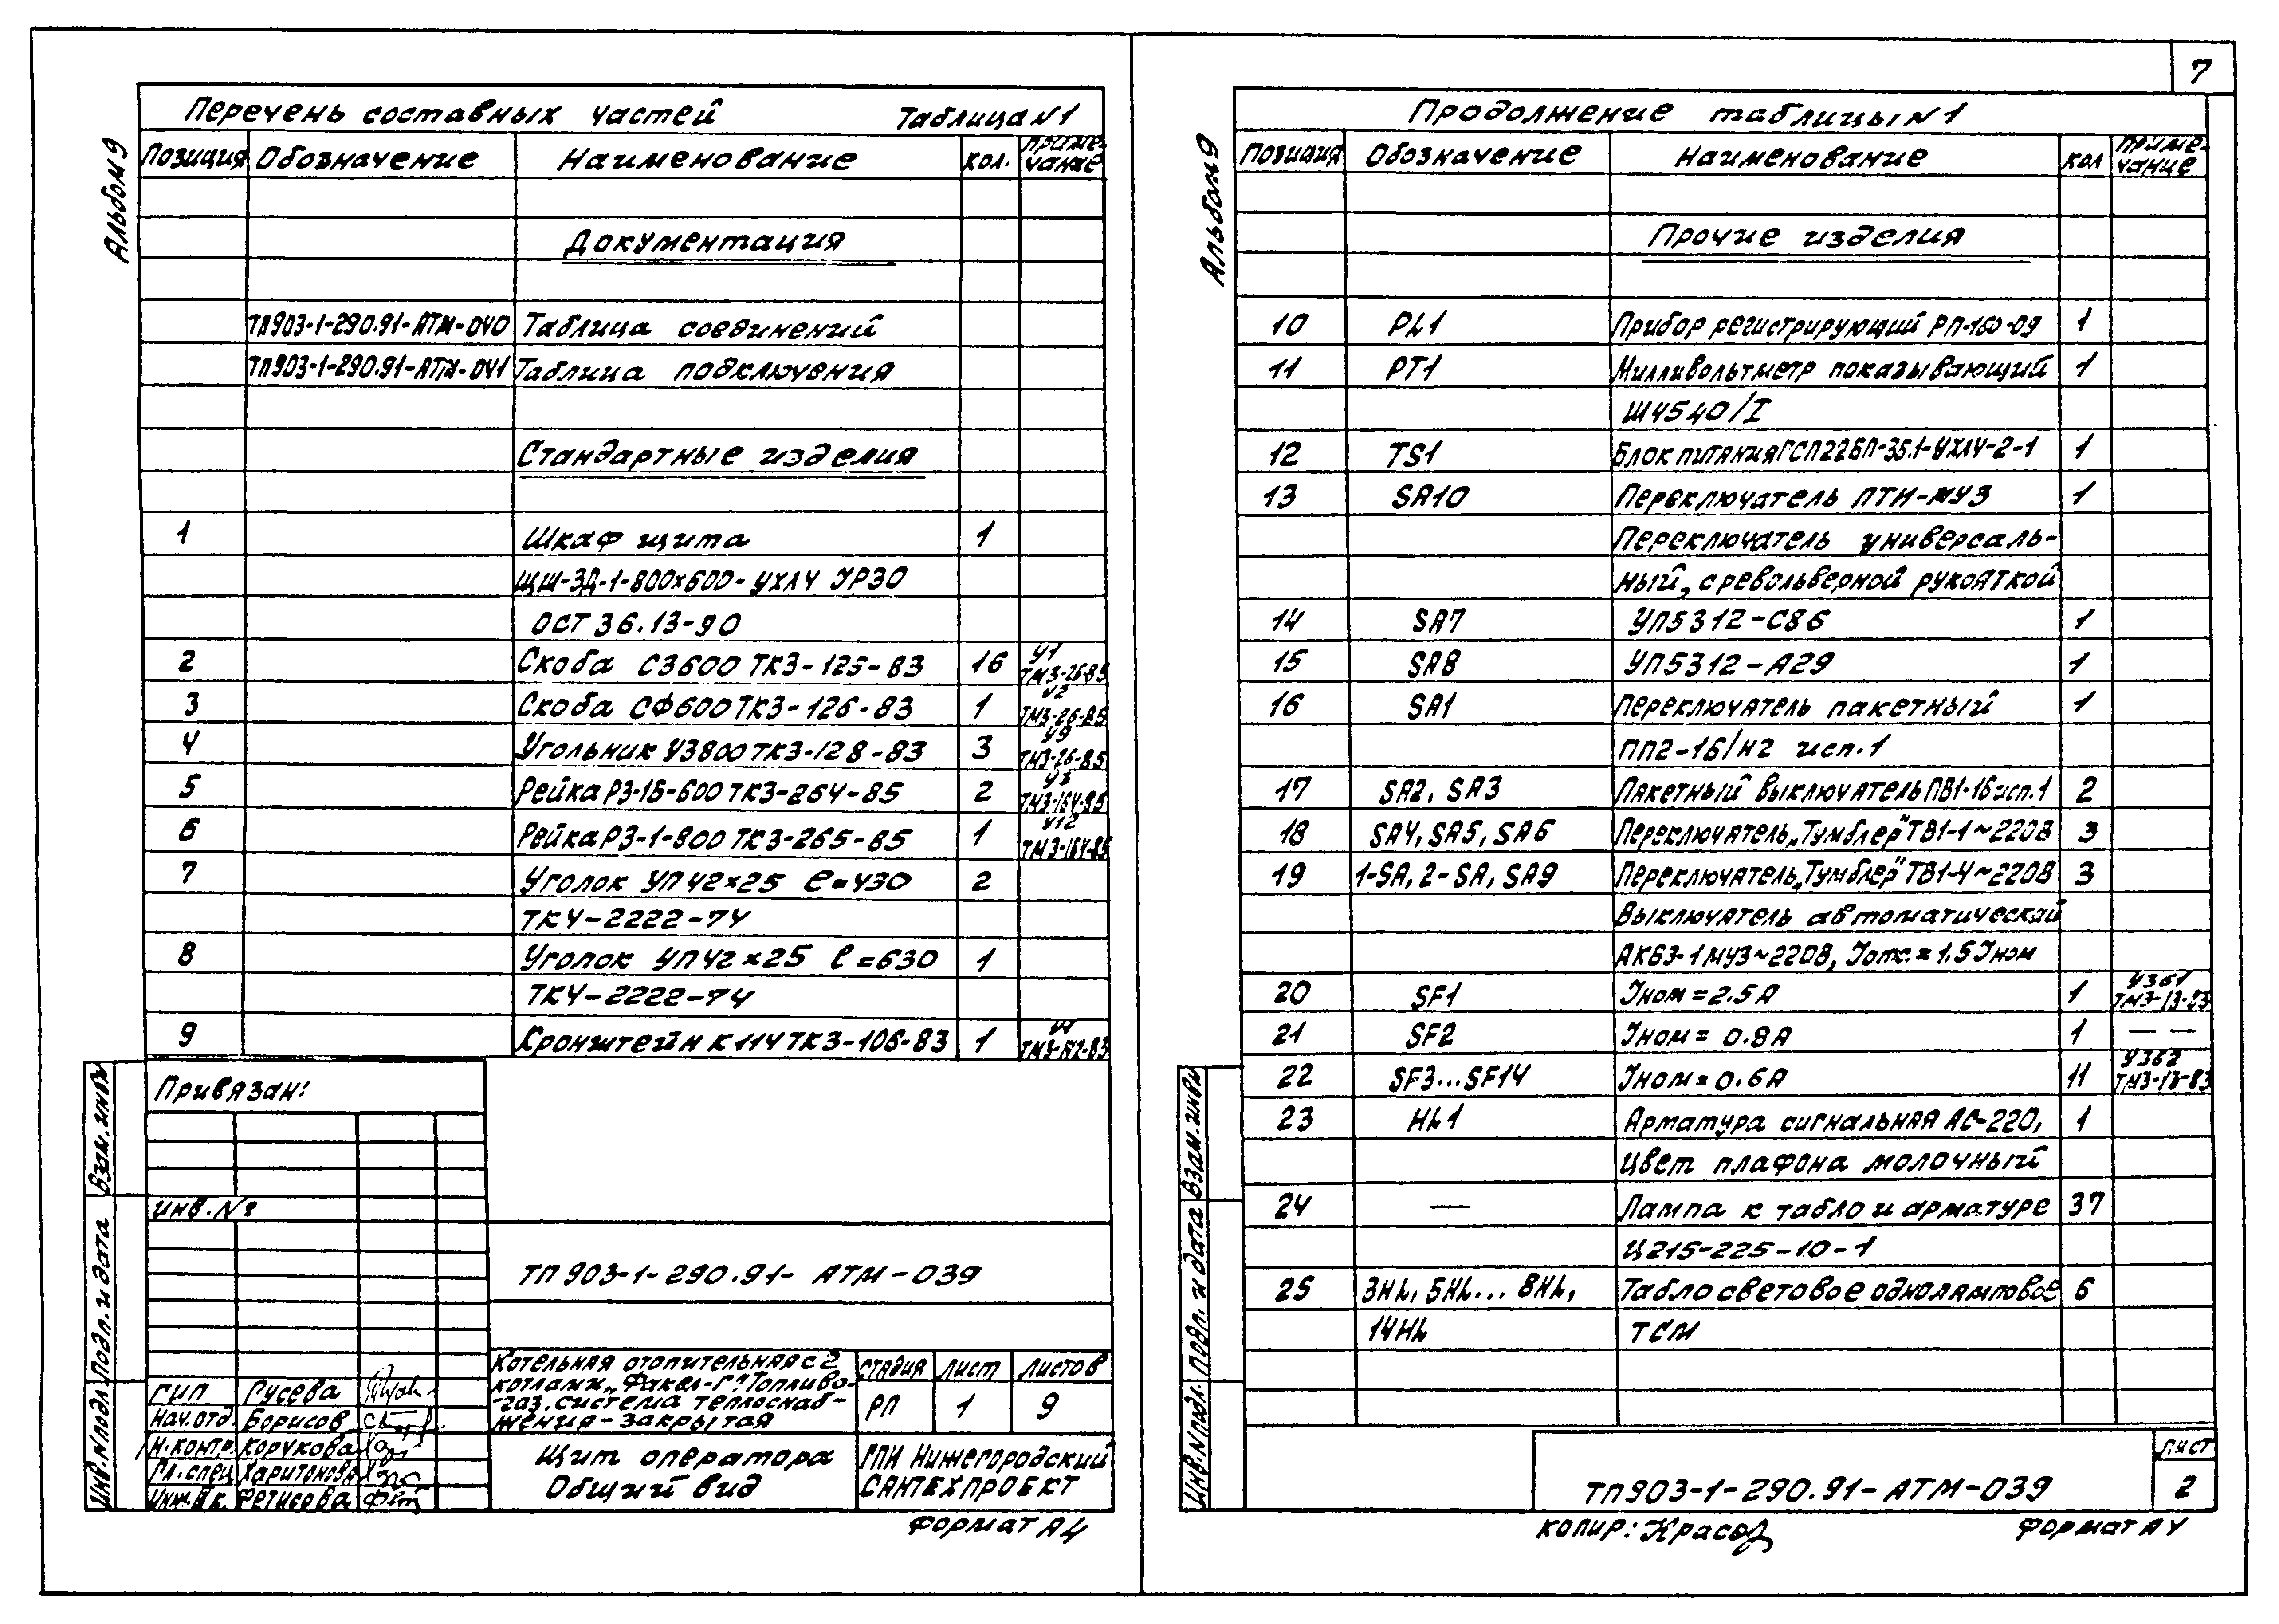 7
Альбом 9
Перечень составных частей Таблица №1
Позиция Обозначение Наименование кол. Приме-
чание
Документация
ТП903-1-290.91-АТМ-040 Таблица соединений
ТП903-1-290.91-АТМ-041 Таблица подключения
Стандартные изделия
1 Шкаф щита 1
ЩШ-ЗД-1-800х600-УХЛ4 IP30
ОСТ 36.13-90
2 Скоба С3600 ТК3-125-83 16 У1 ТМ3-26-85
3 Скоба СФ600 ТК3-126-83 1 У2 ТМ3-26-85
4 Угольник У3800 ТК3-128-83 3 У9 ТМ3-26-85
5 Рейка Р3-1Б-600 ТК3-264-85 2 ТМ3-164-85
6 Рейка Р3-1-800 ТК3-265-85 1 У12 ТМ3-164-85
7 Уголок УП 42×25 ℓ=430 2
ТК4-2222-74
8 Уголок УП 42×25 ℓ=630 1
ТК4-2222-74
9 Кронштейн К114 ТК3-106-83 1
Привязан:
Инв. №
ТП 903-1-290.91- АТМ-039
Котельная отопительная с 2
котлами „Факел-Г". Топливо-
-газ. система теплоснаб-
жения-закрытая
стадия лист листов
РП 1 9
ГИП Гусева
Нач.отд. Борисов
Н.контр. Корукова
Гл.спец Харитонова
Инж.IIк. Фетисова
Щит оператора
Общий вид
ГПИ Нижегородский
САНТЕХПРОЕКТ
Инв.№подл. Подп. и дата Взам.инв№
Формат А4
Альбом 9
Продолжение таблицы №1
Позиция Обозначение Наименование кол Приме-
чание
Прочие изделия
10 PL1 Прибор регистрирующий РП-160-09 1
11 PT1 Милливольтметр показывающий 1
Ш4540/I
12 TS1 Блок питания ГСП 22БП-35.1-УХЛ4-2-1 1
13 SA10 Переключатель ПТИ-МУ3 1
Переключатель универсаль-
ный, с револьверной рукояткой
14 SA7 УП5312-С86 1
15 SA8 УП5312-А29 1
16 SA1 Переключатель пакетный 1
ПП2-16/Н2 исп.1
17 SA2, SA3 Пакетный выключатель ПВ1-16 исп.1 2
18 SA4, SA5, SA6 Переключатель „Тумблер" ТВ1-1 ~220В 3
19 1-SA, 2-SA, SA9 Переключатель „Тумблер" ТВ1-4 ~220В 3
Выключатель автоматический
АК63-1МУ3 ~220В, Iотс.=1.5 Iном
20 SF1 Iном=2.5А 1 У361 ТМ3-13-83
21 SF2 Iном= 0.8А 1 — —
22 SF3...SF14 Iном=0.6А 11 У362 ТМ3-13-83
23 HL1 Арматура сигнальная АС-220, 1
цвет плафона молочный
24 — Лампа к табло и арматуре 37
Ц215-225-10-1
25 3HL, 5HL... 8HL, Табло световое одноламповое 6
14HL ТСМ
Инв.№подл. Подп. и дата Взам.инв№
ТП903-1-290.91-АТМ-039 лист
2
Копир: Формат А4